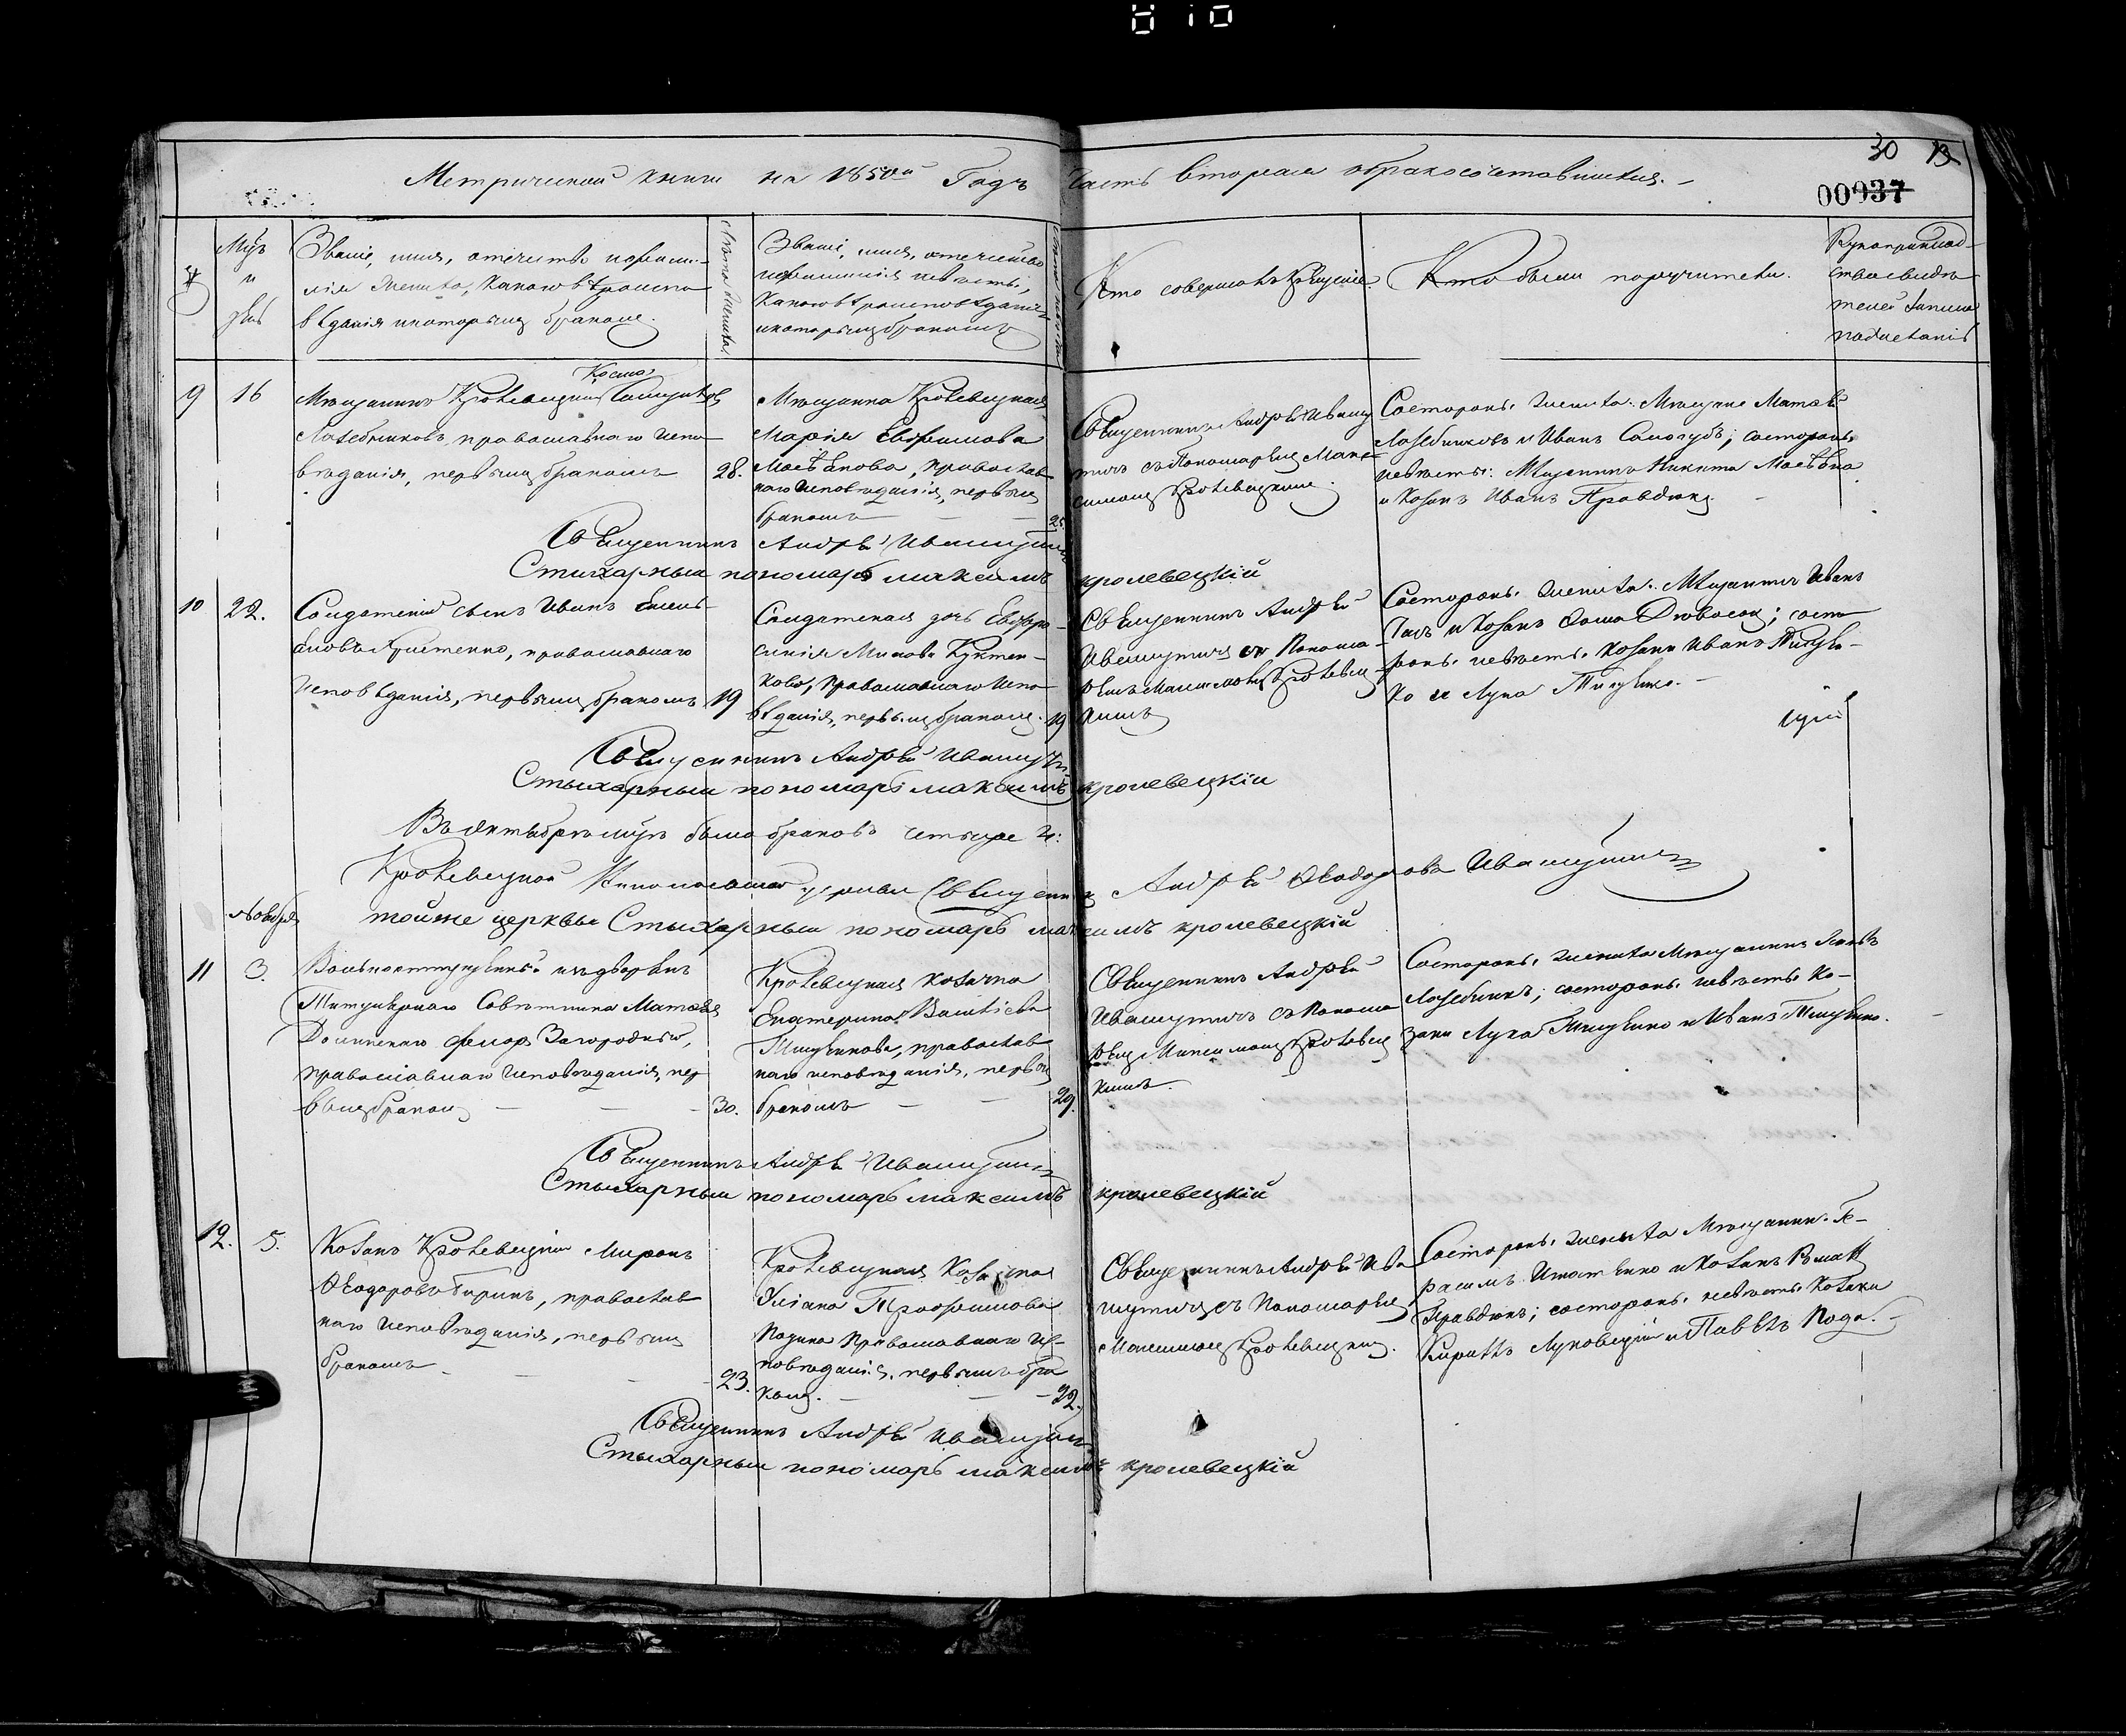 30 13
00037
Метрической книги на 1850й Годъ Часть вторая о бракосочетавшихся.
Мцъ и день
Званіе, имя, отечество и фами-
лія жениха, какого вѣроиспо
вѣданія и которымъ бракомъ.
Лѣта жениха.
Званіе, имя, отечество
и фамилія невѣсты,
какого вѣроисповѣданія
и которымъ бракомъ
Кто совершалъ
Кто были поручители.
Рукоприклад-
ство свидѣ
телей записи
по желанію
9 16
Мѣщанинъ Кролевецкій Косма
Лазебниковъ, православнаго испо
вѣданія, первымъ бракомъ 28.
Мѣщанка Кролевецкая
Марія Евфимова
православ
наго исповѣданія, первымъ
бракомъ 25.
Священникъ Андрей Ивашу
тичъ съ Пономаремъ Макс
симомъ Кролевецкимъ.
Состороны жениха: Мѣщане Матвѣй
Лазебниковъ и Иванъ Самогубъ; состороны
невѣсты: Мѣщанинъ Никита
и Козакъ Иванъ Правдюкъ
Священникъ Андрей Ивашутичъ
Стихарный пономарь максимъ кролевецкій
10 22.
Солдатскій сынъ Иванъ
православнаго
исповѣданія, первымъ бракомъ 19
Солдатская дочь Евфро-
синія
православнаго испо
вѣданія, первымъ бракомъ. 19
Священникъ Андрей
Ивашутичъ съ Понома-
ремъ Максимомъ Кролевец-
кимъ
Состороны жениха: Мѣщанинъ Иванъ
и Козакъ Фома состо
роны невѣсты козаки Иванъ Тищен-
ко и Лука Тищенко.
Священникъ Андрей Ивашутичъ
Стыхарный пономарь максимъ кролевецкій
Въ октябрѣ мцѣ было браковъ четыре 4:
Кролевецкой Николаевской церкви Священникъ Андрей Феодоровъ Ивашутичъ
тойже церквы Стыхарный пономарь максимъ кролевецкій
Ноября
11 3.
Вольноотпущенный изъ дворянъ
Титулярнаго Совѣтника Матвѣя
Загородный,
православнаго исповѣданія, пер
вымъ бракомъ 30.
Кролевецкая козачка
Екатерина Василіева
Тищенкова, православ
наго исповѣданія, первымъ
бракомъ 29.
Священникъ Андрей
Ивашутичъ съ Понома
ремъ Максимомъ Кролевец
кимъ.
Состороны жениха Мѣщанинъ
Лазебникъ; состороны невѣсты Ко-
заки Лука Тищенко и Иванъ Тищенко.
Священникъ Андрей Ивашутичъ
Стыхарный пономарь максимъ кролевецкій
12. 5.
Козакъ Кролевецкій Миронъ
Феодоровъ православ
наго исповѣданія, первымъ
бракомъ 23.
Кролевецкая Козачка
Уліана Трофимова
православнаго ис-
повѣданія, первымъ бра
комъ. 22.
Священникъ Андрей Ива
шутичъ съ Пономаремъ
Максимомъ Кролевецкимъ.
Состороны жениха Мѣщанинъ Ге-
расимъ Игнатенко и Козакъ
Правдюкъ; состороны невѣсты Козаки
Кириллъ и Павелъ
Священникъ Андрей Ивашутичъ
Стыхарный пономарь максимъ кролевецкій